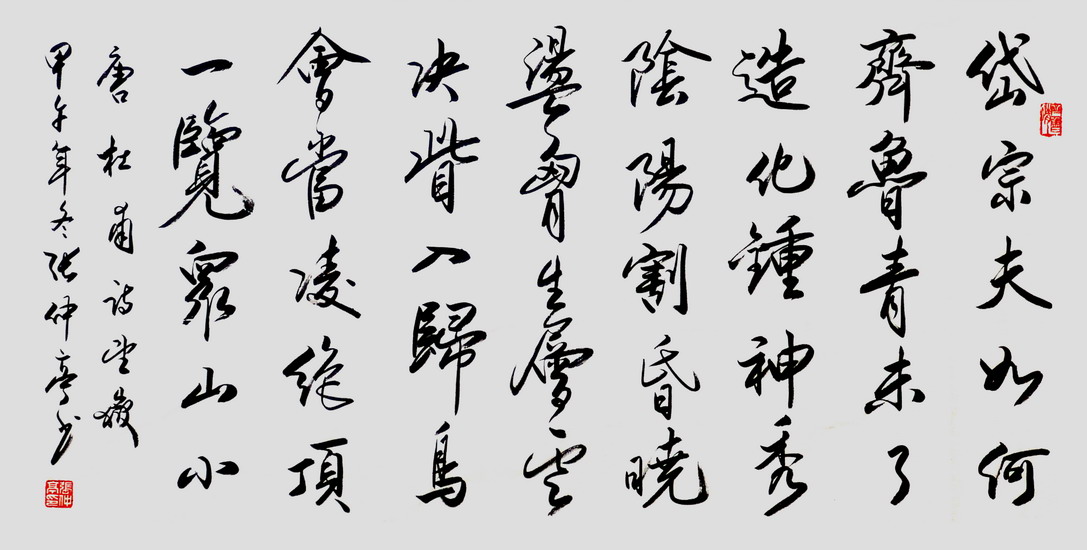 岱宗夫如何
齊魯青未了
造化鍾神秀
陰陽割昏曉
盪胷生層雲
决眥入歸鳥
會當凌絶頂
一覽衆山小
唐杜甫詩望嶽
甲午年冬張仲亭书
張仲亭印